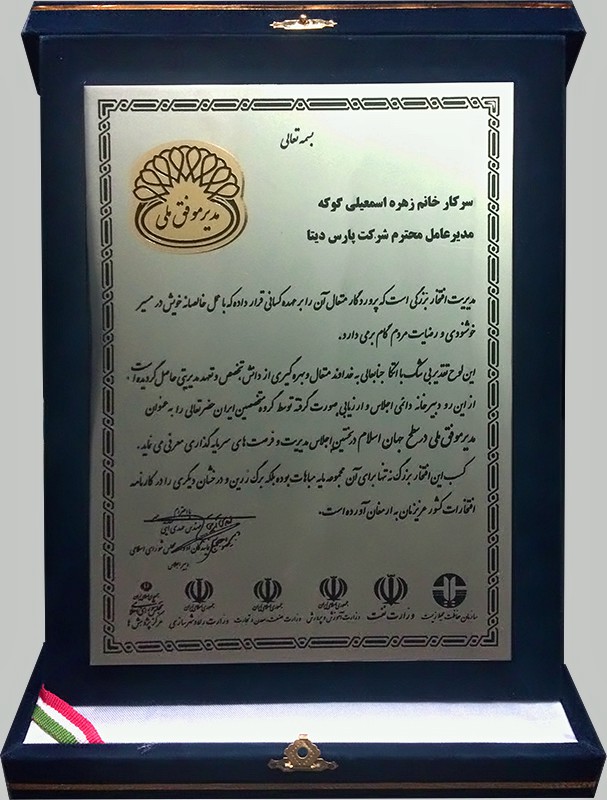 بسمه تعالی
مدیر موفق ملی
سرکار خانم زهره اسمعیلی کوکه
مدیر عامل محترم شرکت پارس دیتا
مدیریت افتخار بزرگی است که پروردگار متعال آن را بر عهده کسانی قرار داده که با عمل خالصانه خویش در مسیر
خوشنودی و رضایت مردم گام بر می دارد.
این لوح تقدیر بی شک با اتکا جنابعالی به خداوند متعال و بهره گیری از دانش، تخصص و تعهد مدیریتی حاصل گردیده است.
از این رو دبیرخانه دائمی اجلاس و ارزیابی صورت گرفته توسط گروه متخصصین ایران حضرتعالی را به عنوان
مدیر موفق ملی در سطح جهان اسلام در نخستین اجلاس مدیریت و فرصت های سرمایه گذاری معرفی می نماید.
کسب این افتخار بزرگ نه تنها برای آن مجموعه مایه مباهات بوده بلکه برگ زرین و درخشان دیگری را در کارنامه
افتخارات کشور عزیزمان به ارمغان آورده است.
با احترام
مجلس شورای اسلامی
دبیر اجلاس
سازمان حفاظت محیط زیست
وزارت نفت
جمهوری اسلامی ایران
وزارت آموزش و پرورش
جمهوری اسلامی ایران
وزارت صنعت، معدن و تجارت
جمهوری اسلامی ایران
وزارت راه و شهرسازی
جمهوری اسلامی ایران
مجلس شورای اسلامی
مرکز پژوهش ها